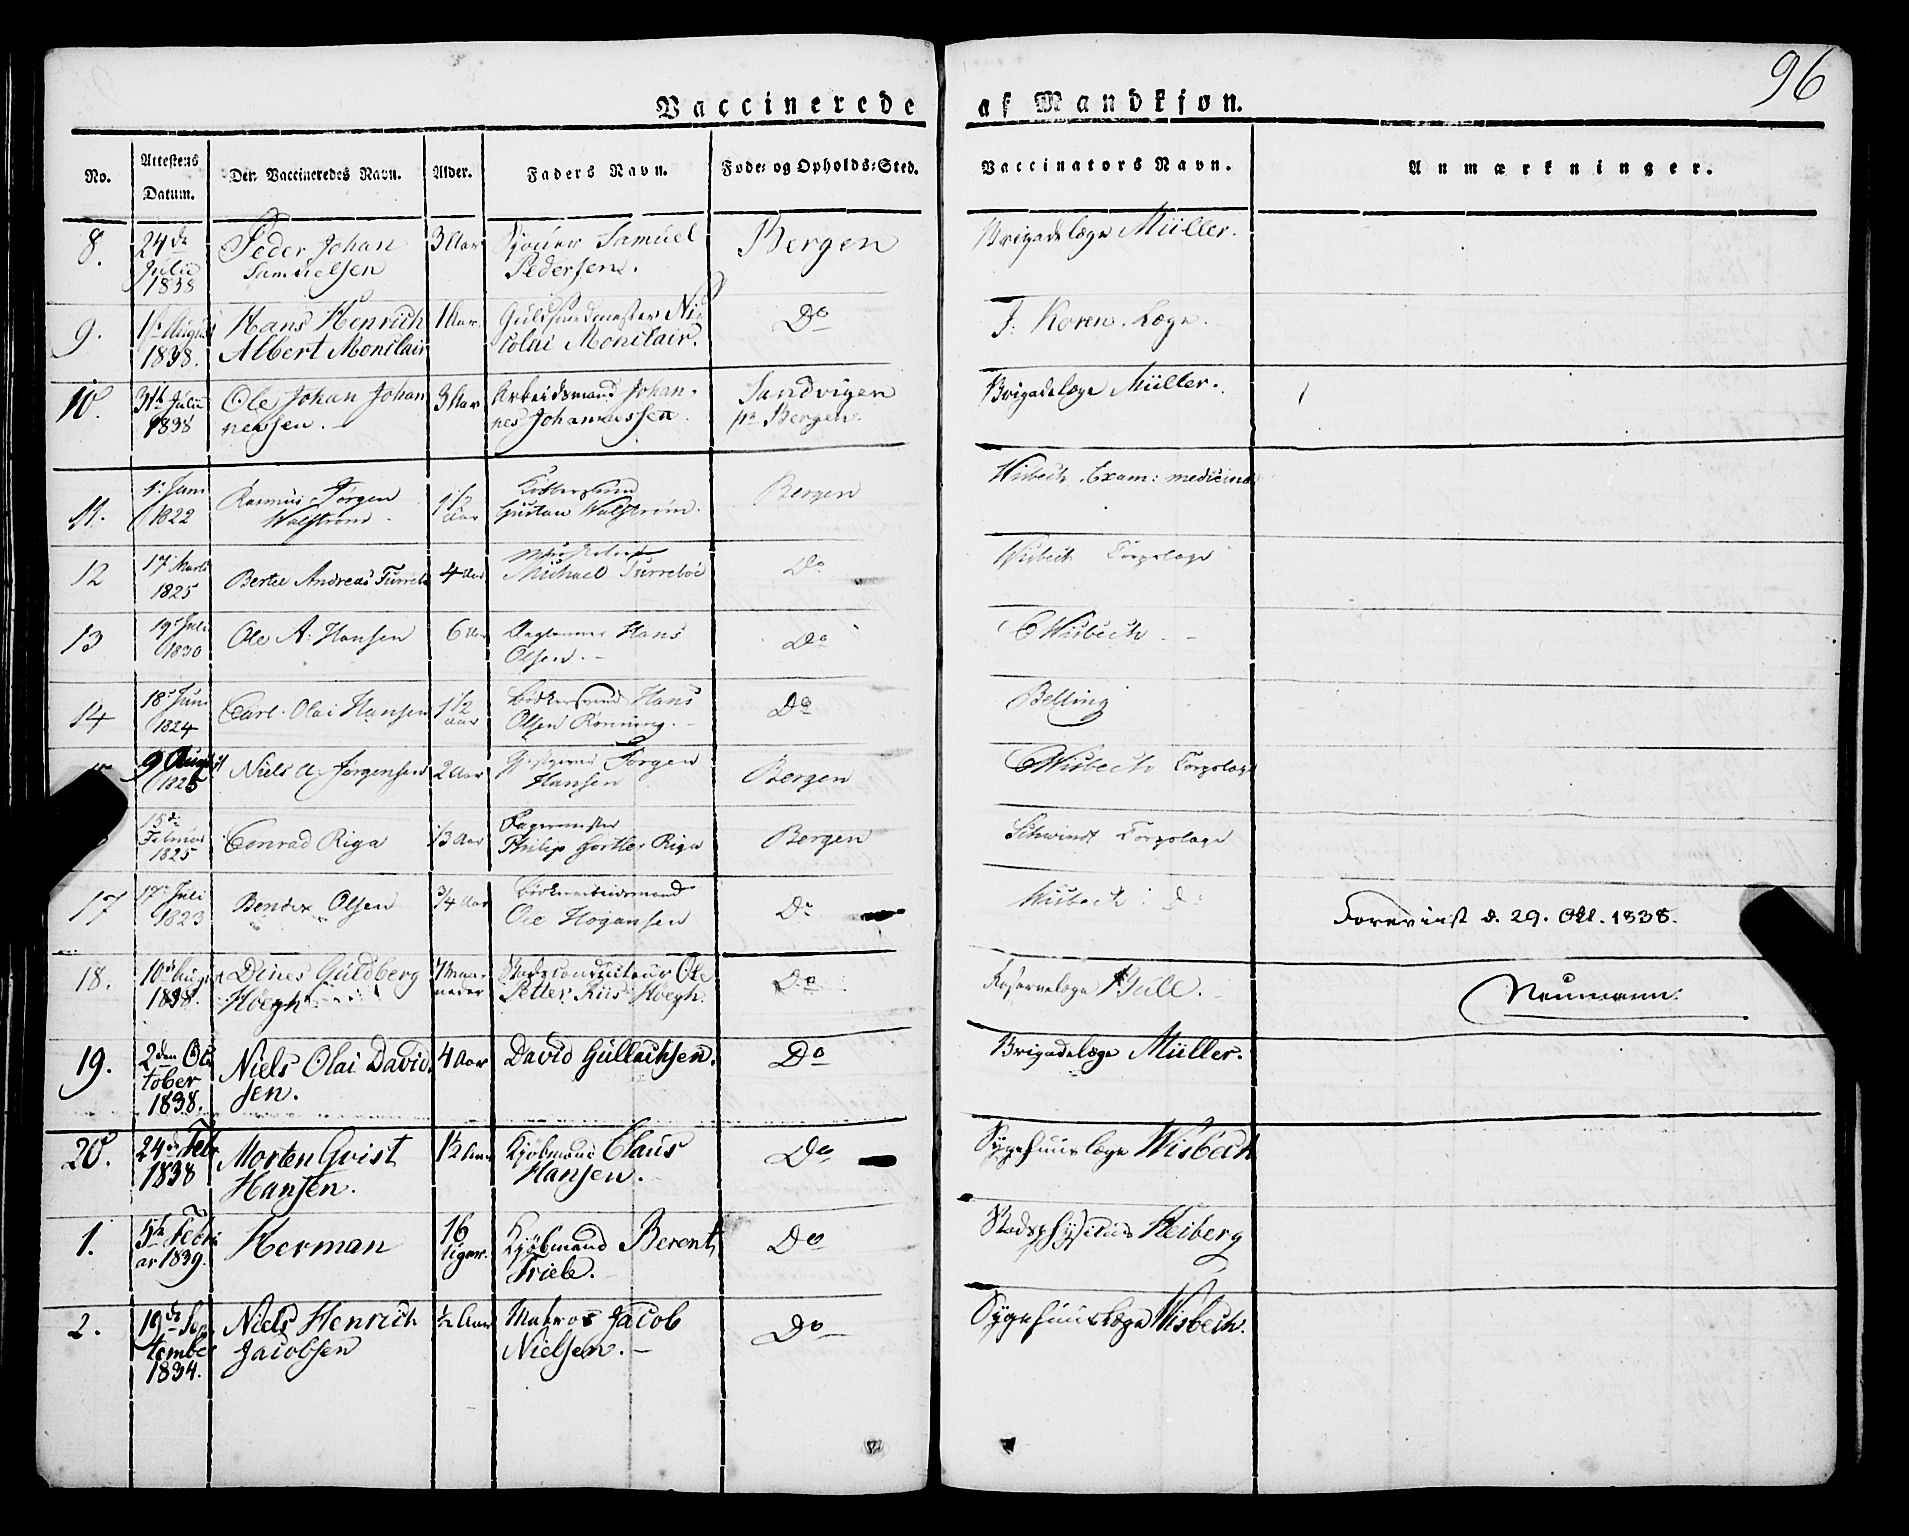 96
Vaccinerede af Mandkjøn.
No. Attestens Datum. Den Vaccineredes Navn. Alder. Faders Navn. Føde- og Opholds-Sted. Vaccinators Navn. Anmærkninger.
8. 24de Julii 1838 Peder Johan Samuelsen 3 Aar Samuel Pedersen. Bergen Brigadelæge Müller.
9. 1ste August 1838. Hans Henrich Albert Monclair 1 Aar. Guldsmedmester Nicolai Monclair. Do J. Koren. Læge.
10. 31te Julii 1838 Ole Johan Johannessen. 3 Aar Arbeidsmand Johannes Johannessen. Sandvigen pr Bergen Brigadelæge Müller.
11. 1822 Rasmus Jørgen Walstrøm 1 1/2 Aar Gustav Walstrøm. Bergen Wisbech Exam: medicinæ
12 17 Marts 1825 Andreas 4 Aar Michael Do Wisbech Corpslæge
13 19 Juli 1830 Ole A. Hansen 6 Aar Hans Olsen. Do CWisbech.
14 18 Juni 1824 Carl Olai Hansen 1 1/2 Aar Hans Olsen Rønning. Do Belling
9 August 1826 Niels A. Jørgensen 2 Aar Jørgen Hansen Bergen CWisbech Corpslæge
15de Februar 1825 Conrad Riga 1/3 Aar Philip Riga Bergen Schwindt Corpslæge
17 17 Juli 1823 Bendix Olsen 3/4 Aar Bødkerarbeidsmand Ole Do Wisbech: d:
Forevist d. 29. Okt. 1838.
Neumann.
18. 10de August 1838. Dines Guldberg Høegh. Maaneder Stadsconducteur Ole Petter Riis Høegh. Do Bull.
19. 2den October 1838. Niels Olai Davidsen. 4 Aar David Gullachsen. Do Brigadelæge Müller.
20. 24de Febr 1838 Morten Qvist Hansen. 1 1/2 Aar Kjøbmand Claus Hansen. Do Sygehuuslæge Wisbech
1. 5te Februar 1839. Herman 16 Uger. Kjøbmand Berent Friele. Do Stadsphysicus Heiberg
2. 19de September 1834. Niels Henrich Jacobsen 1/2 Aar Matros Jacob Nielsen. Do Sygehuuslæge Wisbech.